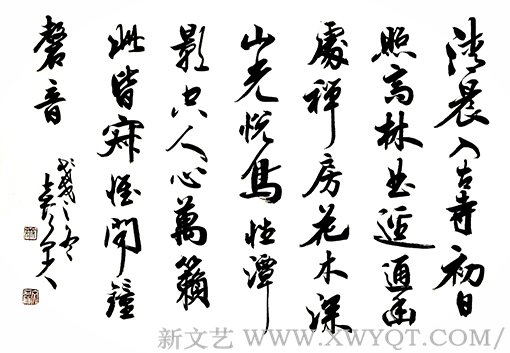 清晨入古寺初日
照高林曲逕通幽
處禪房花木深
山光悅鳥性潭
影空人心萬籟
此皆寂惟聞鐘
磬音
戊戌之冬
新文艺 WWW.XWYQT.COM/